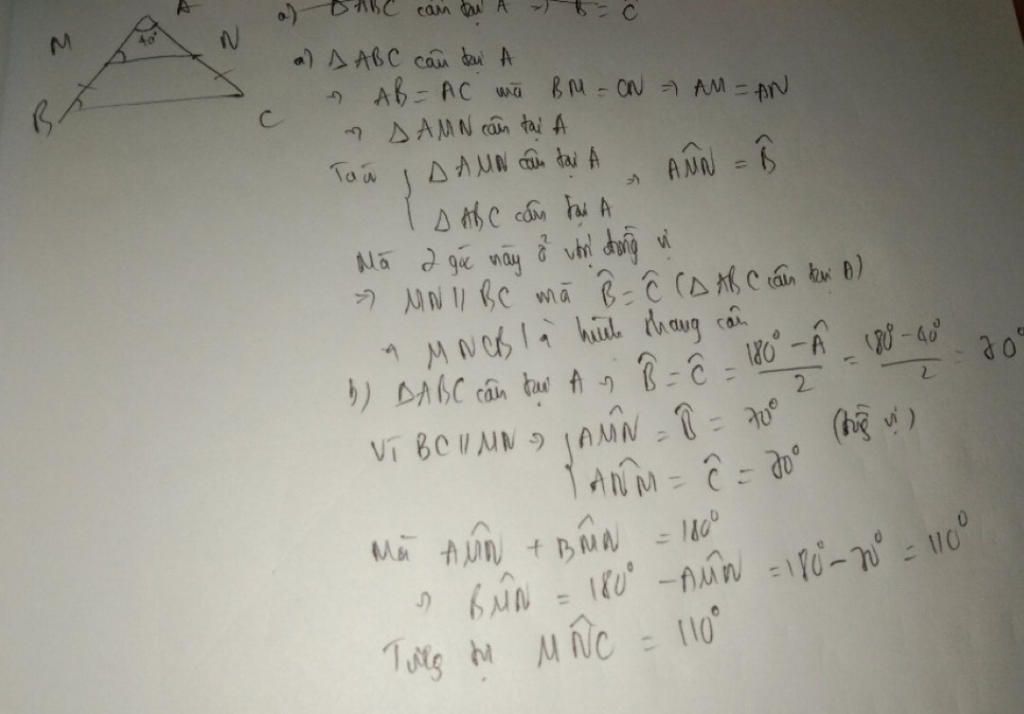 A
40°
M
N
B
C
a) △ABC cân tại A ⇒ B̂ = Ĉ
a) △ABC cân tại A
⇒ AB = AC mà BM = CN ⇒ AM = AN
⇒ △AMN cân tại A
Ta có { △AMN cân tại A
△ABC cân tại A ⇒ AM̂N = B̂
Mà 2 góc này ở vị trí đồng vị
⇒ MN // BC mà B̂ = Ĉ (△ABC cân tại A)
⇒ MNCB là hình thang cân
b) △ABC cân tại A ⇒ B̂ = Ĉ = (180° - Â)/2 = (180° - 40°)/2 = 70°
Vì BC // MN ⇒ { AM̂N = B̂ = 70° (đồng vị)
AN̂M = Ĉ = 70°
Mà AM̂N + BM̂N = 180°
⇒ BM̂N = 180° - AM̂N = 180° - 70° = 110°
Tương tự MN̂C = 110°